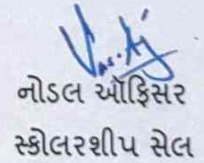 નોડલ ઑફિસર
સ્કોલરશીપ સેલ